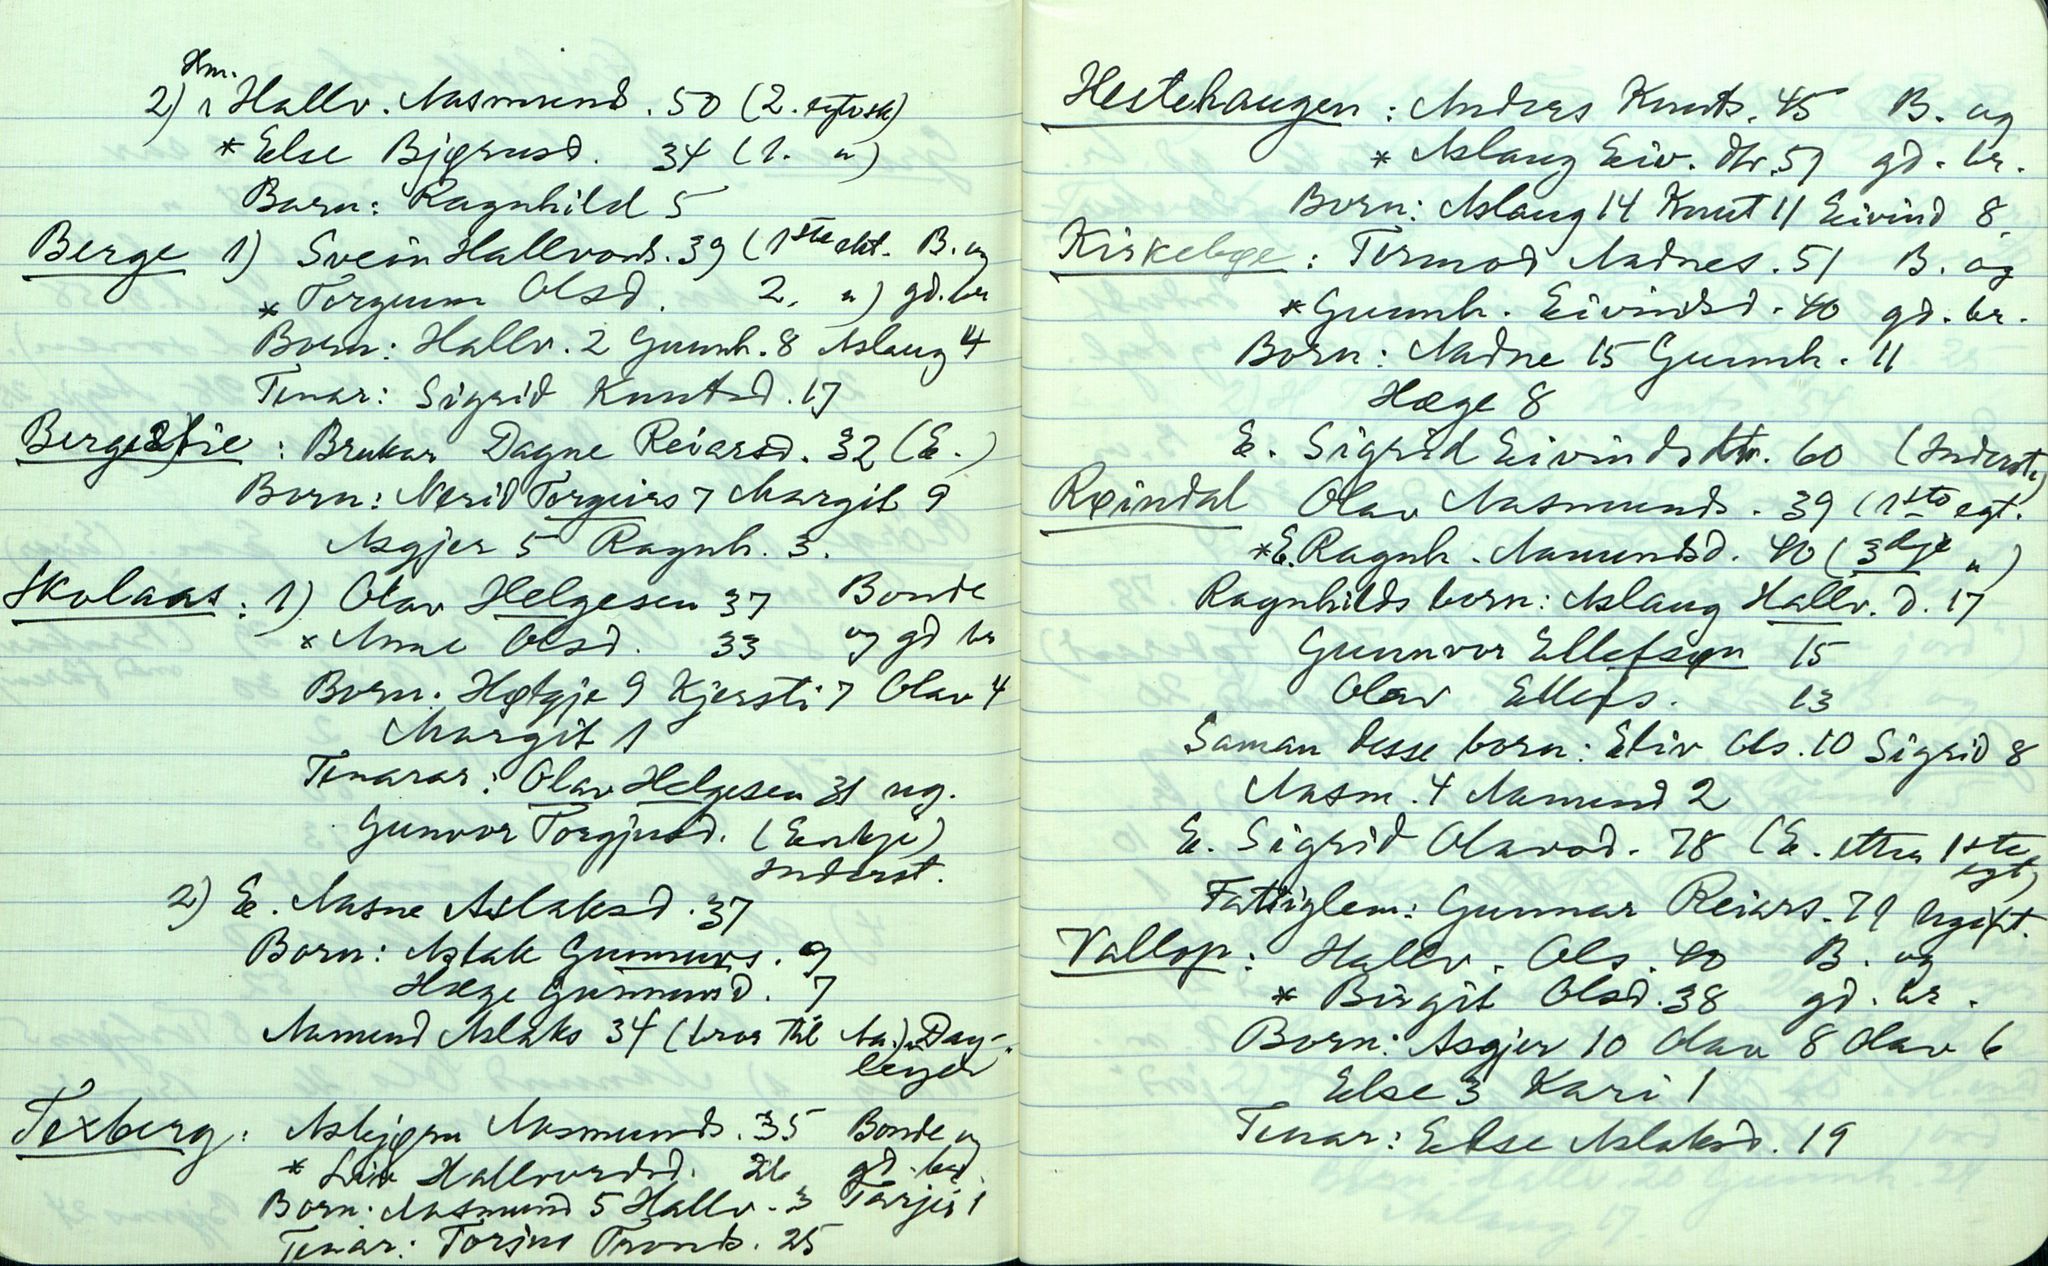 Hm.
2) 1 Hallv. Aasmund. 50 (2. egtesk)
* Else Bjørnsd. 34 (1. ")
Born: Ragnhild 5
Berge 1) Svein Hallvords. 39 (1ste ekt. B. og
* Torgunn Olsd. 2. ") gd. br
Born: Hallv. 2 Gunnh. 8 Aslaug 4
Tenar: Sigrid Knutsd. 17
Bergestie: Brukar Dagne Reiarsd. 32 (E.)
Born: Nerid Torgeirs 7 Margit 9
Asgjer 5 Ragnh. 3.
Skolaas: 1) Olav Helgesen 37 Bonde
* Anne Olsd. 33 og gd br
Born: Høtgje 9 Kjersti 7 Olav 4
Margit 1
Tenarar: Olav Helgesen 31 ug.
Gunvor Torgjusd. (Enkje)
Inderst.
2) E. Aasne Aslaksd. 37
Born: Aslak Gunnars. 9
Hæge Gunnarsd. 7
Aamund Aslaks 34 (bror til Aa.) Dag-
leygd
Texberg: Asbjørn Aasmunds. 35 Bonde og
* Liv Hallvordsd. 26 gd. br.
Born: Aasmund 5 Hallv. 3 Tarjei 1
Tenar: Torjus Tronds. 25
Hestehaugen: Anders Knuts. 45 B. og
* Aslaug Eiv. dtr. 57 gd. br.
Born: Aslaug 14 Knut 11 Eivind 8
Kirkebøe: Tormod Aadnes. 51 B. og
* Gunnh. Eivindsd. 40 gd. br.
Born: Aadne 15 Gunnh. 11
Hæge 8
E. Sigrid Eivindsdtr. 60 (Inderst)
Reindal Olav Aasmunds. 39 (1ste egt.
*E. Ragnh. Aamundsd. 40 (3dje ")
Ragnhilds born: Aslaug Hallv. d. 17
Gunnvor Ellefsen 15
Olav Ellefs. 13
Saman desse born: Eliv Ols. 10 Sigrid 8
Aasm. 4 Aamund 2
E. Sigrid Olavsd. 78 (E. etter 1ste
egt)
Fattiglem: Gunnar Reiars. 79 Ugift.
Vallop: Hallv. Ols. 40 B. og
* Birgit Olsd. 38 gd. br.
Born: Asgjer 10 Olav 8 Olav 6
Else 3 Kari 1
Tenar: Else Aslaksd. 19